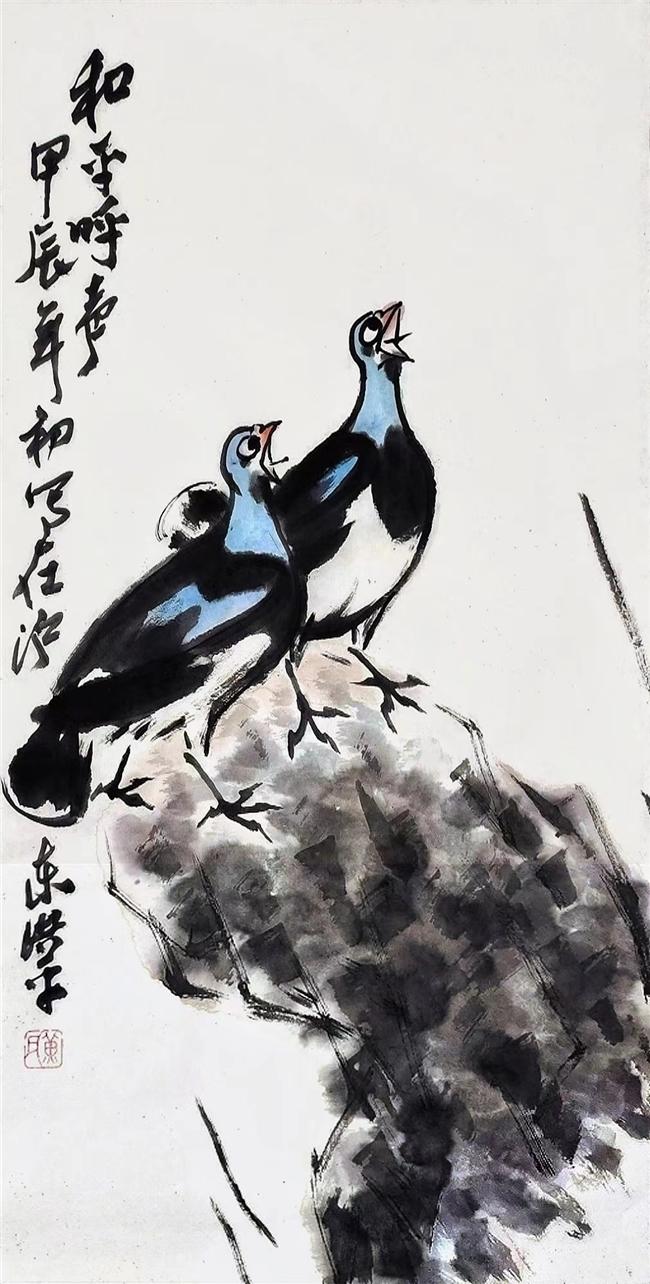 和平呼声
甲辰年初写在沪
东洪平